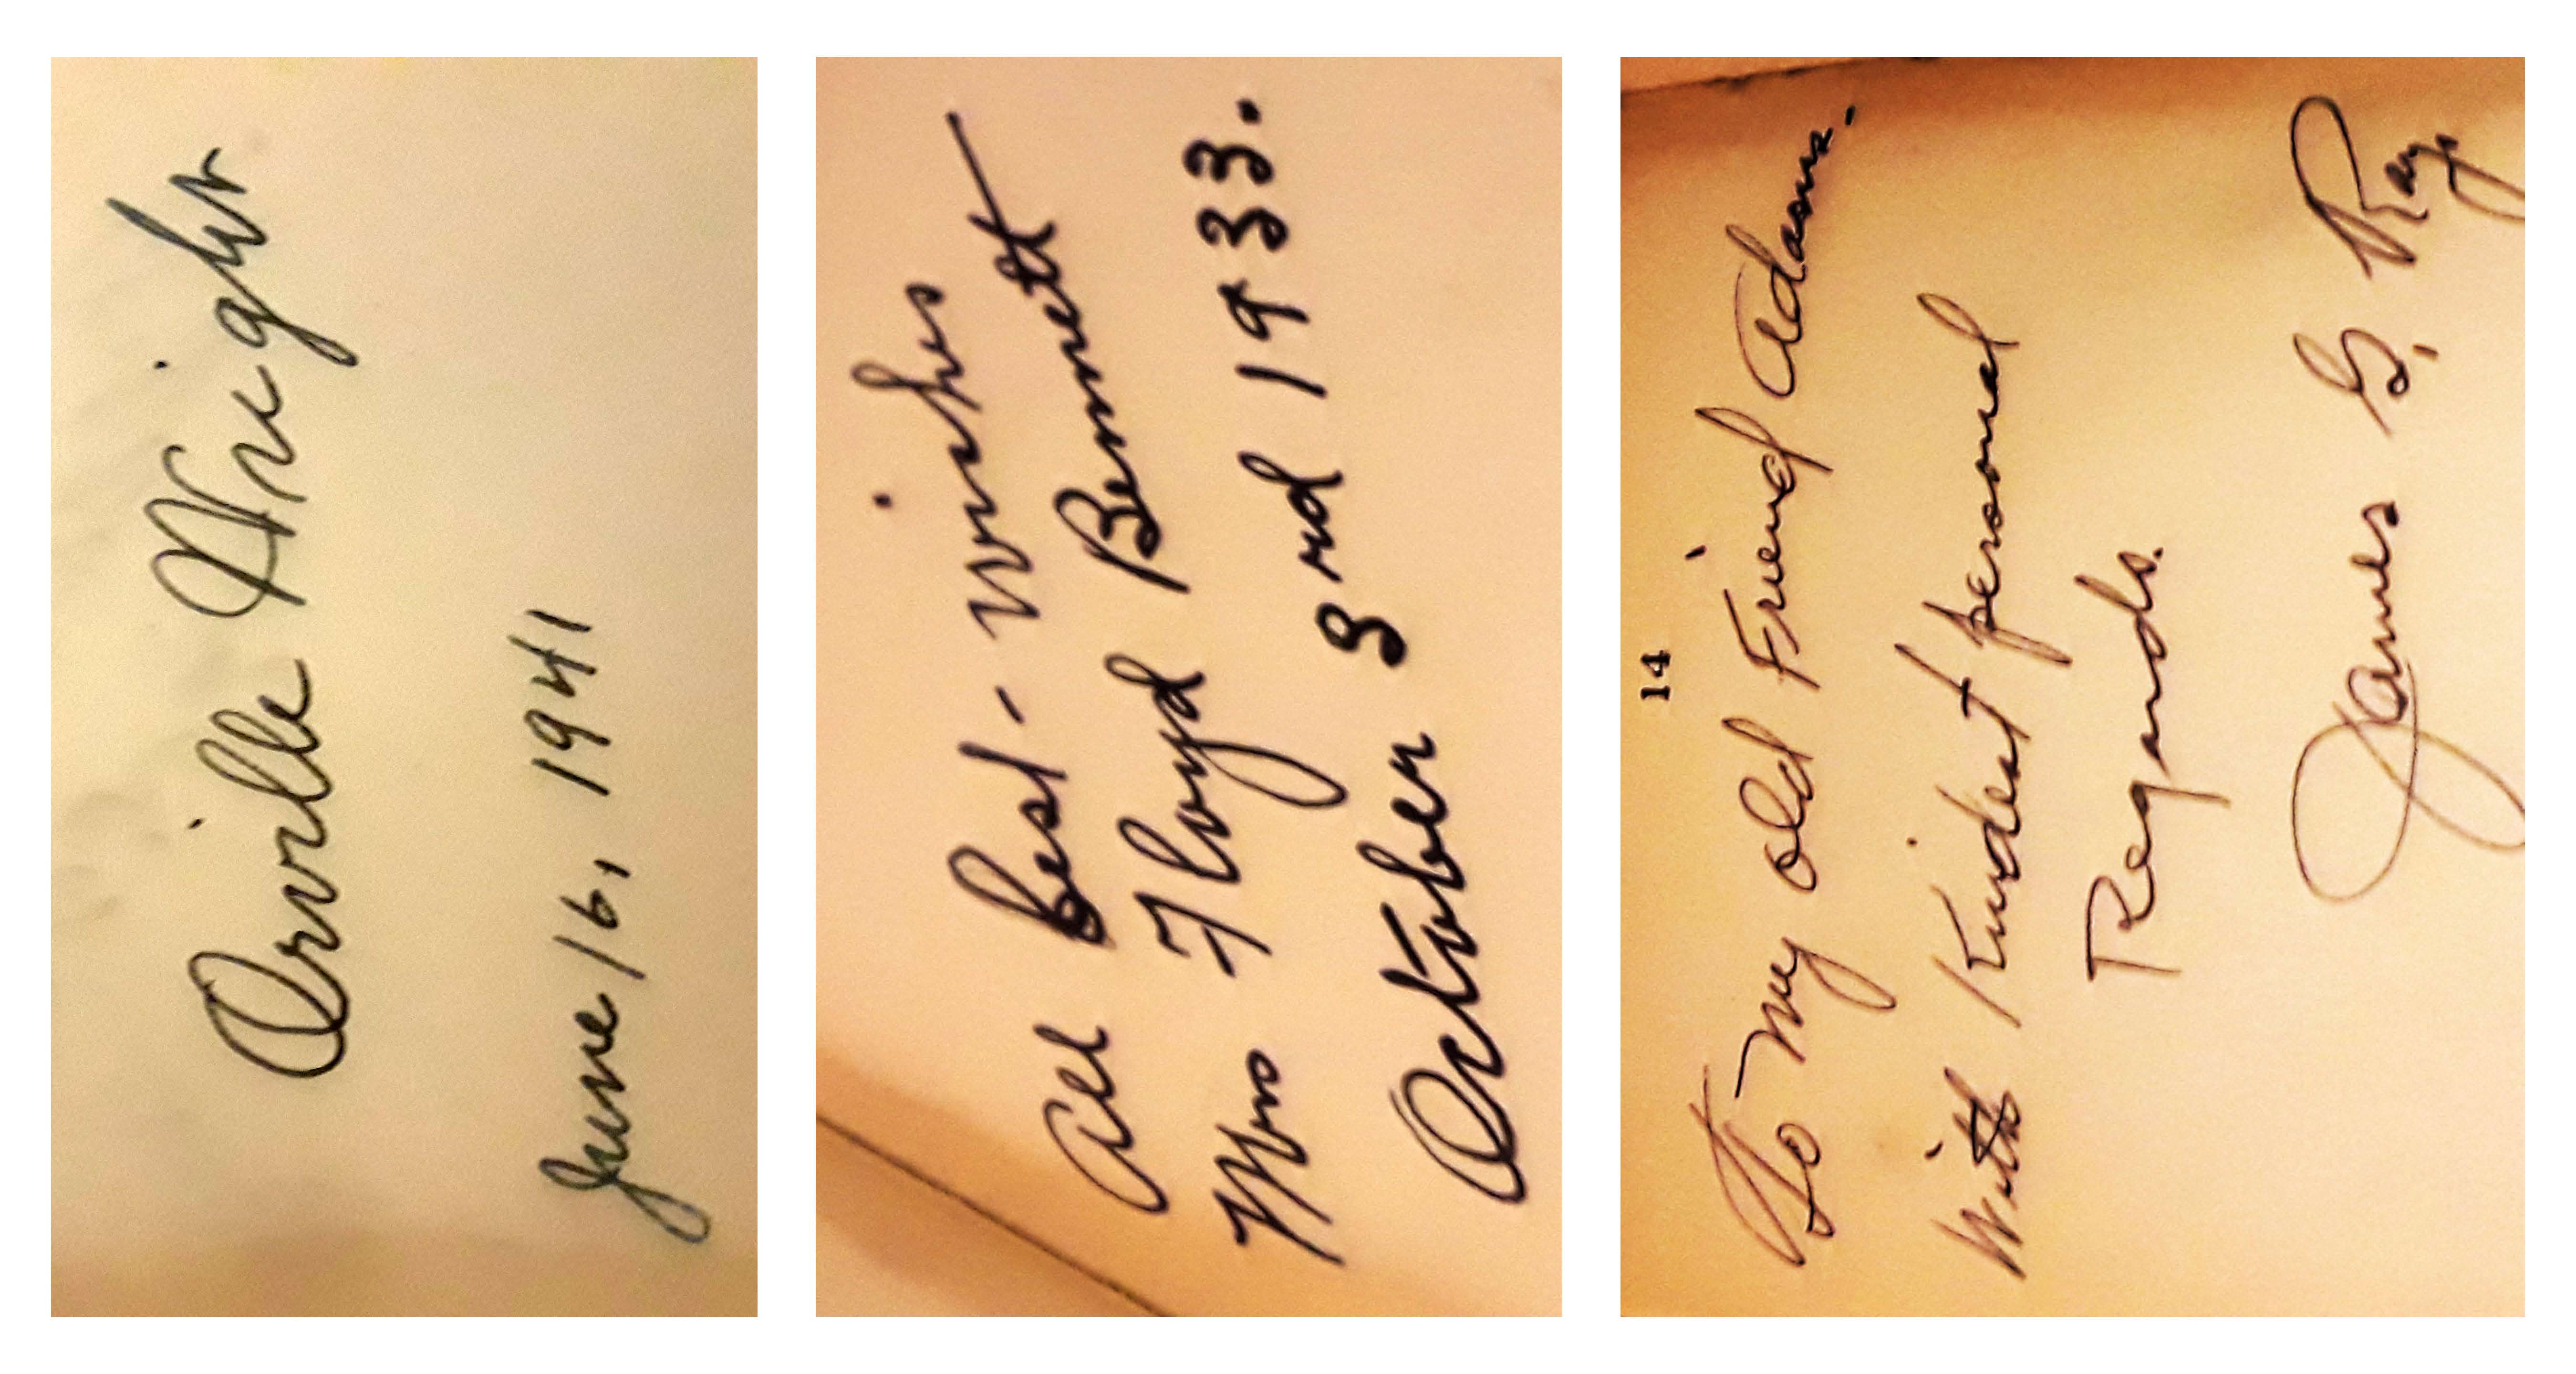 Orville Wright
June 16, 1941
All best - wishes
Mrs Floyd Bennett
October 3rd 1933.
14
To My old Friend Adams.
With Kindest personal
Regards.
James G. Ray